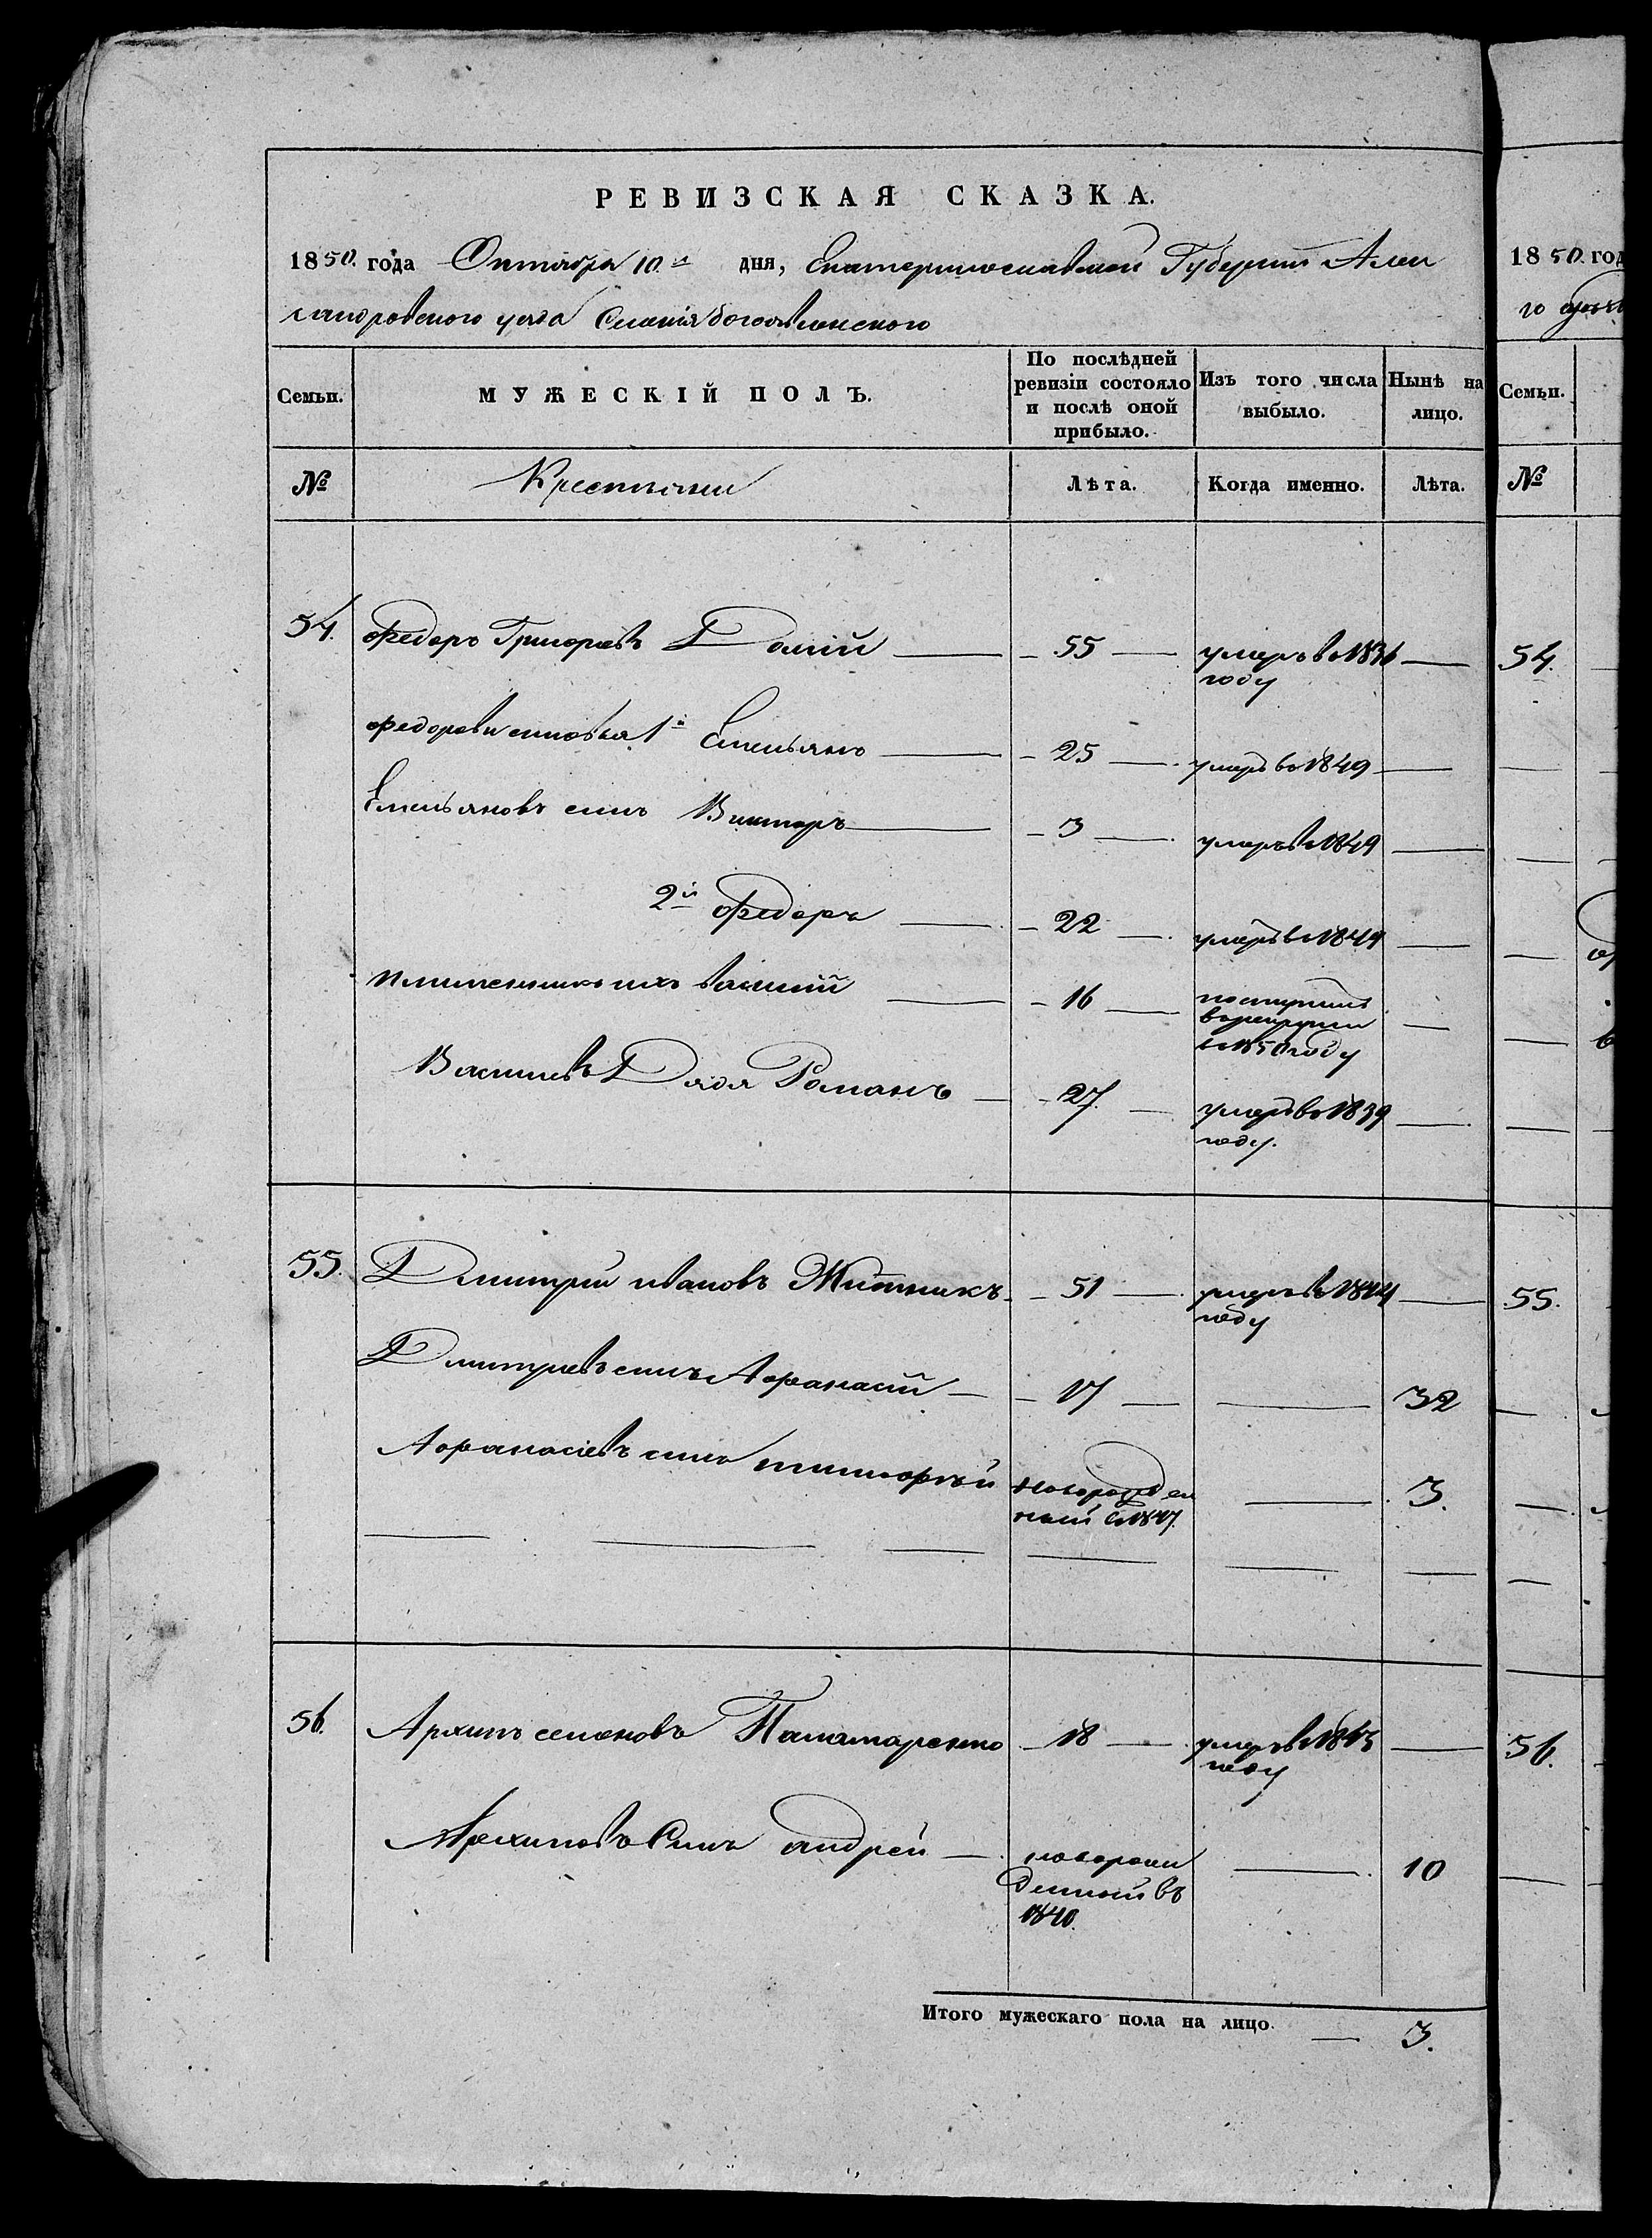 РЕВИЗСКАЯ СКАЗКА.
1850. года Октября 10.го дня, Екатеринославской Губернии Алек
сандровского уезда Селенія богоявленского
Семьи. МУЖЕСКІЙ ПОЛЪ. По послѣдней ревизіи состояло и послѣ оной прибыло. Изъ того числа выбыло. Нынѣ на лицо.
№ Крестьяни Лѣта. Когда именно. Лѣта.
54. Федоръ Григорьевъ — 55 — умеръ в 1836 году —
Федоровы сыновья 1й Емельянъ — 25 — умеръ в 1849 —
Емельяновъ сынъ Викторъ — 3 — умеръ в 1849 —
2й Федоръ — 22 — умеръ в 1849 —
племенникъ ихъ — 16 — поступилъ в рекруты в 1850 году —
Дядя Романъ — 27. — умеръ в 1839 году. —
55. Дмитрий ивановъ Житникъ — 51 — умеръ в 1844 году —
Дмитриевъ синъ Афанасий — 17 — — 32
Афанасіевъ синъ тимофей новорожден ный в 1847. — 3.
56. Архипъ семеновъ Паламаренко — 18 — умеръ в 1843 году —
Архиповъ Синъ андрей — новорож денный въ 1840. — 10
Итого мужескаго пола на лицо. — 3.
1850. год
го
Семьи.
№
54.
55.
56.